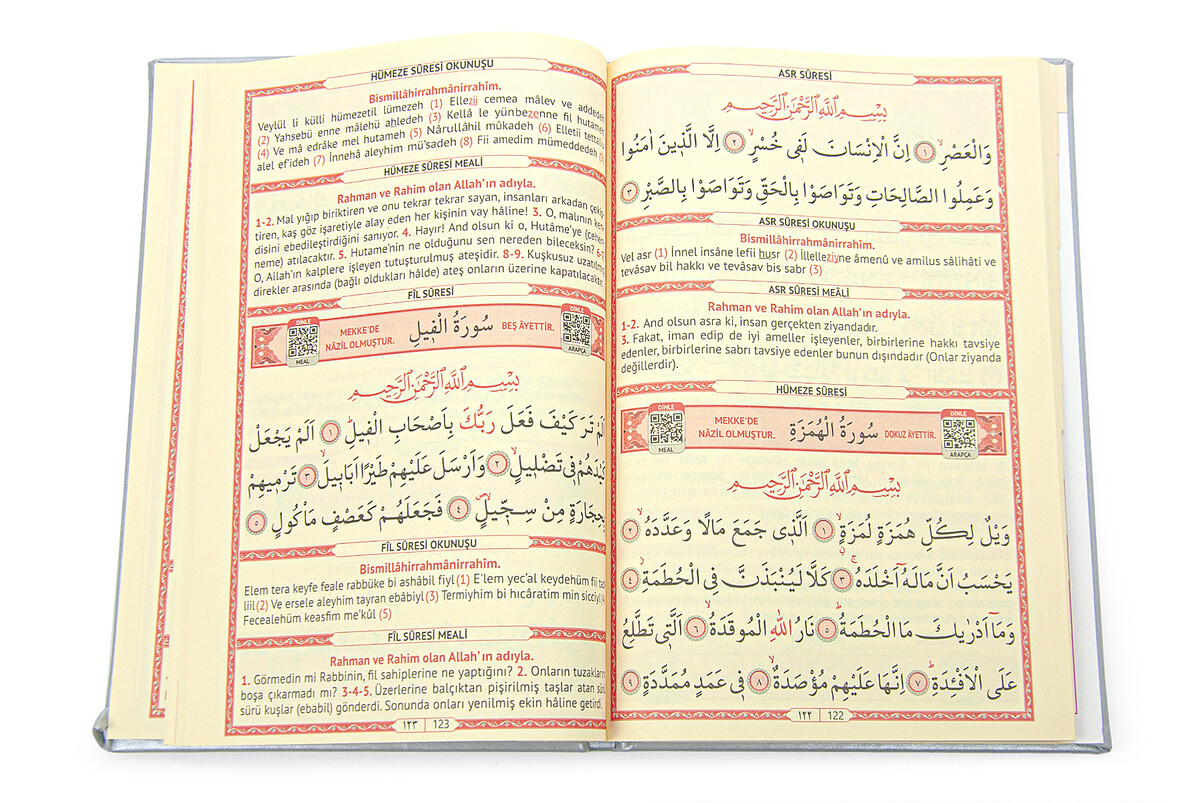 ASR SÛRESİ
بِسْمِ اللّٰهِ الرَّحْمٰنِ الرَّحِيمِ
وَالْعَصْرِۙ ﴿١﴾ اِنَّ الْاِنْسَانَ لَفٖى خُسْرٍۙ ﴿٢﴾ اِلَّا الَّذٖينَ اٰمَنُوا
وَعَمِلُوا الصَّالِحَاتِ وَتَوَاصَوْا بِالْحَقِّ وَتَوَاصَوْا بِالصَّبْرِ ﴿٣﴾
ASR SÛRESİ OKUNUŞU
Bismillâhirrahmânirrahîm.
Vel asr (1) İnnel insâne lefii husr (2) İllelleziyne âmenû ve amilus sâlihâti ve
tevâsav bil hakkı ve tevâsav bis sabr (3)
ASR SÛRESİ MEÂLİ
Rahman ve Rahim olan Allah'ın adıyla.
1-2. And olsun asra ki, insan gerçekten ziyandadır.
3. Fakat, iman edip de iyi ameller işleyenler, birbirlerine hakkı tavsiye
edenler, birbirlerine sabrı tavsiye edenler bunun dışındadır (Onlar ziyanda
değillerdir).
HÜMEZE SÛRESİ
DİNLE MEAL
MEKKE'DE NÂZİL OLMUŞTUR. سُورَةُ الْهُمَزَةِ DOKUZ ÂYETTİR.
DİNLE ARAPÇA
بِسْمِ اللّٰهِ الرَّحْمٰنِ الرَّحِيمِ
وَيْلٌ لِكُلِّ هُمَزَةٍ لُمَزَةٍۙ ﴿١﴾ اَلَّذٖى جَمَعَ مَالًا وَعَدَّدَهُۙ ﴿٢﴾
يَحْسَبُ اَنَّ مَالَهُٓ اَخْلَدَهُۚ ﴿٣﴾ كَلَّا لَيُنْبَذَنَّ فِى الْحُطَمَةِۘ ﴿٤﴾
وَمَٓا اَدْرٰيكَ مَا الْحُطَمَةُؕ ﴿٥﴾ نَارُ اللّٰهِ الْمُوقَدَةُۙ ﴿٦﴾ اَلَّتٖى تَطَّلِعُ
عَلَى الْاَفْـِٔدَةِؕ ﴿٧﴾ اِنَّهَا عَلَيْهِمْ مُؤْصَدَةٌۙ ﴿٨﴾ فٖى عَمَدٍ مُمَدَّدَةٍ ﴿٩﴾
١٢٢ 122
HÜMEZE SÛRESİ OKUNUŞU
Bismillâhirrahmânirrahîm.
Veylül li külli hümezetil lümezeh (1) Ellezii cemea mâlev ve addedeh
(2) Yahsebü enne mâlehü ahledeh (3) Kellâ le yünbezenne fil hutameh
(4) Ve mâ edrâke mel hutameh (5) Nârullâhil mûkadeh (6) Elletii tettaliu
alel ef'ideh (7) İnnehâ aleyhim mü'sadeh (8) Fii amedim mümeddedeh
HÜMEZE SÛRESİ MEÂLİ
Rahman ve Rahim olan Allah'ın adıyla.
1-2. Mal yığıp biriktiren ve onu tekrar tekrar sayan, insanları arkadan çekiş-
tiren, kaş göz işaretiyle alay eden her kişinin vay hâline! 3. O, malının ken-
disini ebedileştirdiğini sanıyor. 4. Hayır! And olsun ki o, Hutâme'ye (cehen-
neme) atılacaktır. 5. Hutame'nin ne olduğunu sen nereden bileceksin? 6-7.
O, Allah'ın kalplere işleyen tutuşturulmuş ateşidir. 8-9. Kuşkusuz uzatılmış
direkler arasında (bağlı oldukları hâlde) ateş onların üzerine kapatılacaktır.
FİL SÛRESİ
DİNLE MEAL
MEKKE'DE NÂZİL OLMUŞTUR. سُورَةُ الْفٖيلِ BEŞ ÂYETTİR.
DİNLE ARAPÇA
بِسْمِ اللّٰهِ الرَّحْمٰنِ الرَّحِيمِ
اَلَمْ تَرَ كَيْفَ فَعَلَ رَبُّكَ بِاَصْحَابِ الْفٖيلِؕ ﴿١﴾ اَلَمْ يَجْعَلْ
كَيْدَهُمْ فٖى تَضْلٖيلٍۙ ﴿٢﴾ وَاَرْسَلَ عَلَيْهِمْ طَيْرًا اَبَابٖيلَۙ ﴿٣﴾ تَرْمٖيهِمْ
بِحِجَارَةٍ مِنْ سِجّٖيلٍۙ ﴿٤﴾ فَجَعَلَهُمْ كَعَصْفٍ مَاْكُولٍ ﴿٥﴾
FİL SÛRESİ OKUNUŞU
Bismillâhirrahmânirrahîm.
Elem tera keyfe feale rabbüke bi ashâbil fiyl (1) E'lem yec'al keydehüm fil tad-
liil (2) Ve ersele aleyhim tayran ebâbiyl (3) Termiyhim bi hıcâratim min sicciyl
Fecealehüm keasfim me'kûl (5)
FİL SÛRESİ MEALİ
Rahman ve Rahim olan Allah'ın adıyla.
1. Görmedin mi Rabbinin, fil sahiplerine ne yaptığını? 2. Onların tuzaklarını
boşa çıkarmadı mı? 3-4-5. Üzerlerine balçıktan pişirilmiş taşlar atan sürü
sürü kuşlar (ebabil) gönderdi. Sonunda onları yenilmiş ekin hâline getirdi.
١٢٣ 123